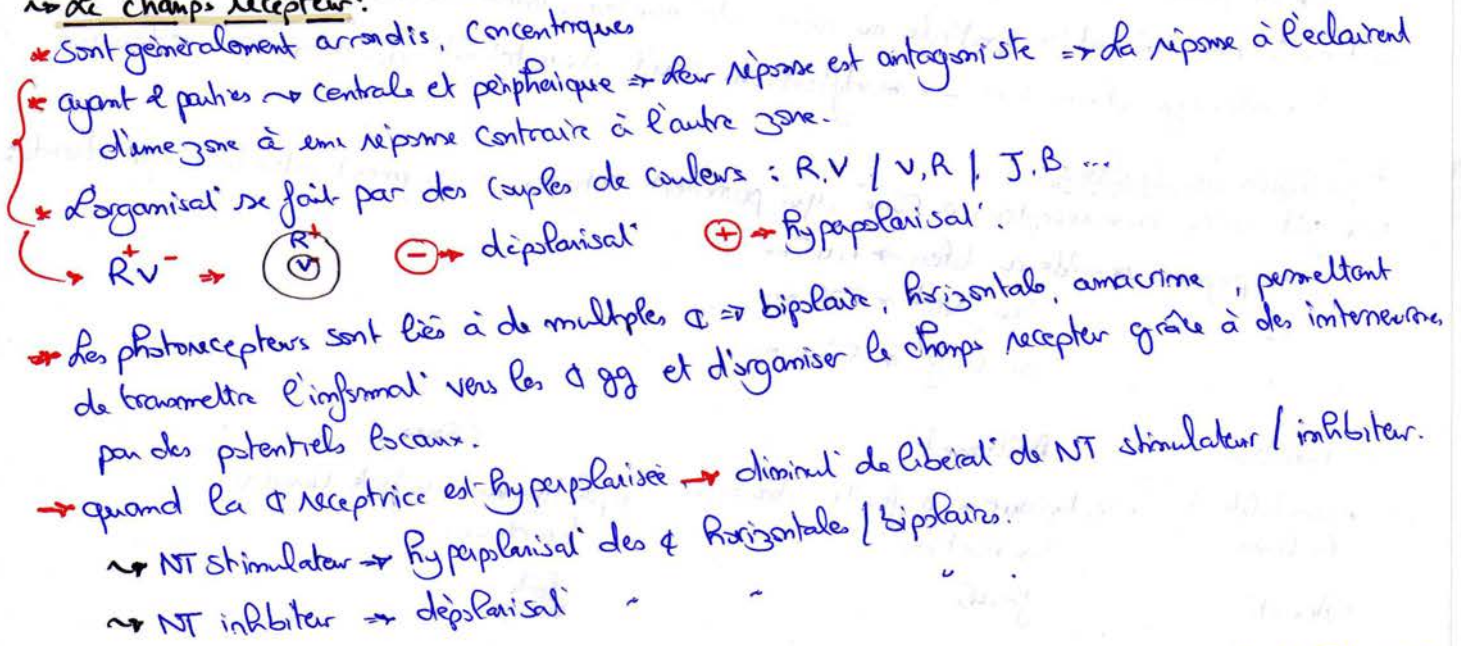 ↝ Le champs récepteur:
* Sont généralement arrondis, concentriques
* ayant 2 parties ↝ centrale et périphérique ⇒ leur réponse est antagoniste ⇒ La réponse à l'eclairent
d'une zone à une réponse contraire à l'autre zone.
* L'organisat° se fait par des couples de couleurs : R.V / V,R /. J.B ...
→ R⁺V⁻ ⇒ R⁺ V ⊖→ dépolarisat° ⊕→ hyperpolarisat°.
→ Les photorécepteurs sont liés à de multiples ¢ ⇒ bipolaire, horizontale, amacrine, permettant
de transmettre l'informat° vers les ¢ gg et d'organiser le champs recepteur grâce à des interneurones
par des potentiels locaux.
→ quand la ¢ réceptrice est hyperpolarisée → diminut° de liberat° de NT stimulateur / inhibiteur.
↝ NT stimulateur → hyperpolarisat° des ¢ horizontales / bipolaires.
↝ NT inhibiteur → dépolarisat° " " " .